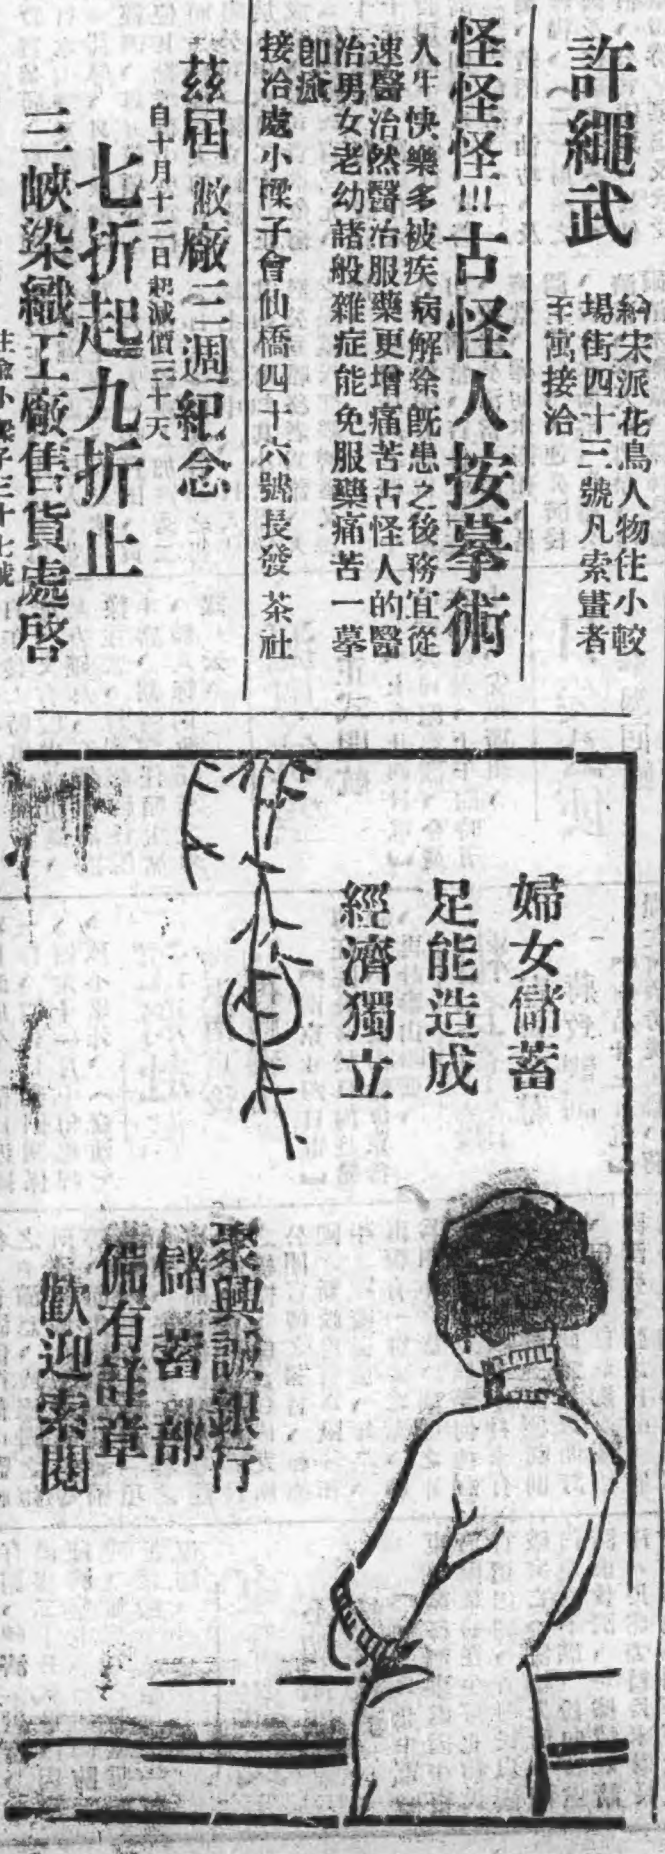 許繩武
繪宋派花鳥人物住小較
場街四十三號凡索畫者
至寓接洽
怪怪怪!!!古怪人按摹術
人生快樂多被疾病解除既患之後務宜從
速醫治然醫治服藥更增痛苦古怪人的醫
治男女老幼諸般雜症能免服藥痛苦一摹
卽癒
接洽處小樑子會仙橋四十六號長發茶社
茲屆敝廠三週紀念
自十月十二日起減價三十天
七折起九折止
三峽染織工廠售貨處啓
小樑子三十七號
婦女儲蓄
足能造成
經濟獨立
聚興誠銀行
儲蓄部
備有詳章
歡迎索閱